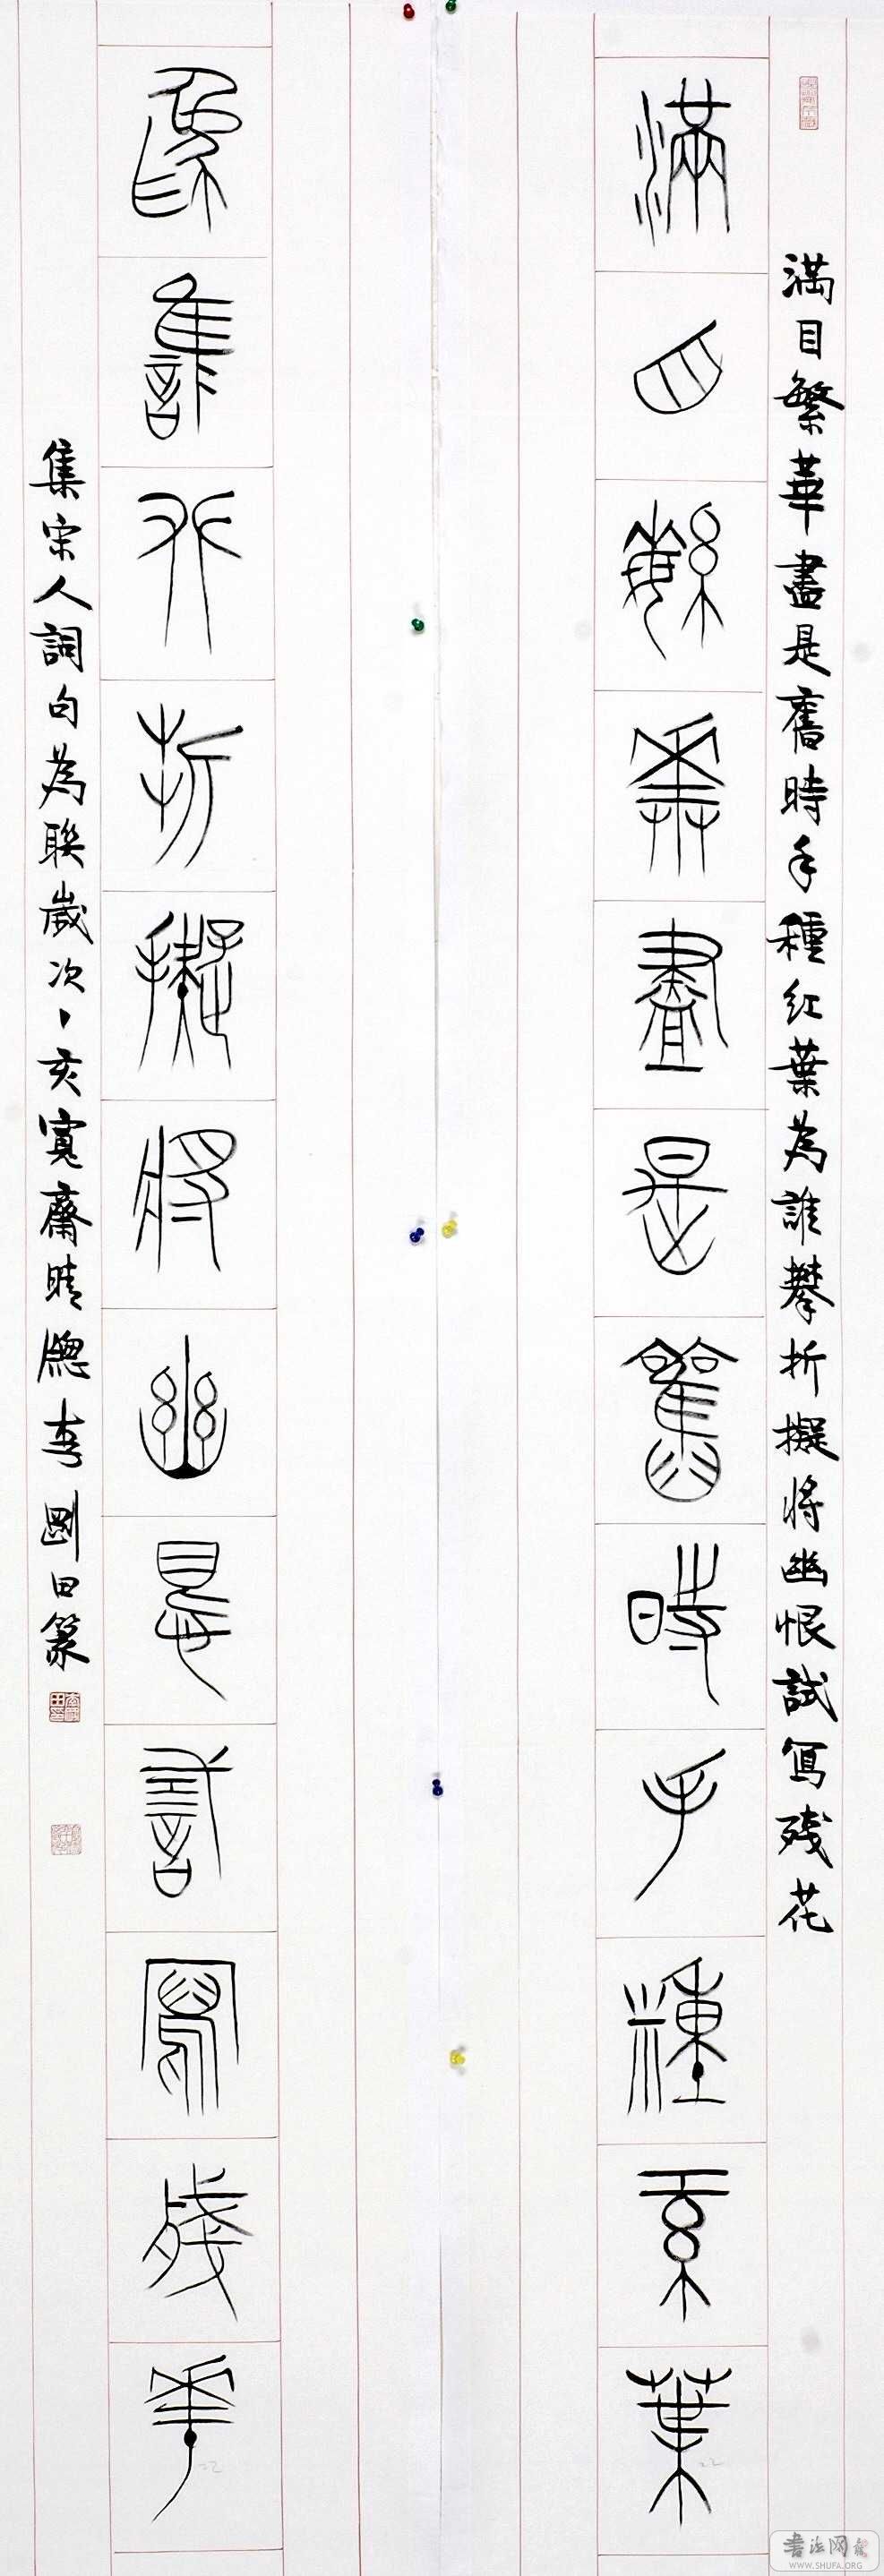 滿目繁華盡是舊時手種紅葉為誰攀折擬將幽恨試寫殘花
滿目繁華盡是舊時手種紅葉
為誰攀折擬將幽恨試寫殘華
集宋人詞句為聯歲次丁亥寬齋晴牕李剛田篆
書法网
WWW.SHUFA.ORG